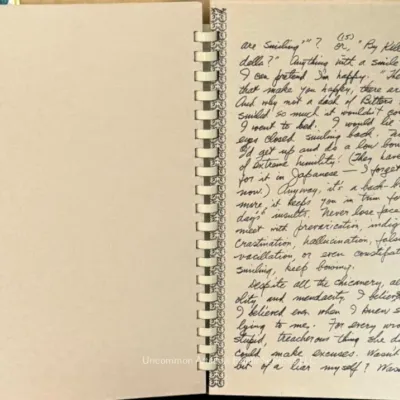 are smiling"? (15) or, "By Kell
della?" Anything with a smile
I can pretend I'm happy. "The
that make you happy, there are
And why not a dash of Bitters
smiled so much it wouldn't co
I went to bed. I would lie
eyes closed smiling back.
I'd get up and do a low bow
of extreme humility. (They have
for it in Japanese — I forget
now.) Anyway, it's a back-b
more, it keeps you in trim fo
day's insults. Never lose face
meet with prevarication, indig
crastination, hallucination, fals
vacillation, or even constipat
smiling, keep bowing.
Despite all the chicanery, al
olity, and mendacity I believ
I believed even when I knew s
lying to me. For every wro
stupid, treacherous thing she di
could make excuses. Wasn't
bit of a liar myself? Was
Uncommon